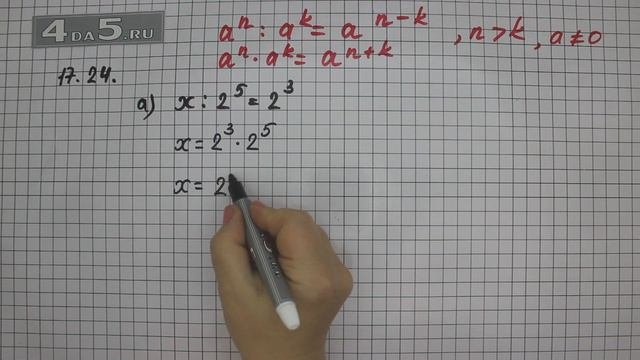 4 DA 5.RU
aⁿ : aᵏ = aⁿ⁻ᵏ , n > k , a ≠ 0
aⁿ · aᵏ = aⁿ⁺ᵏ
17.24.
а) x : 2⁵ = 2³
x = 2³ · 2⁵
x = 2